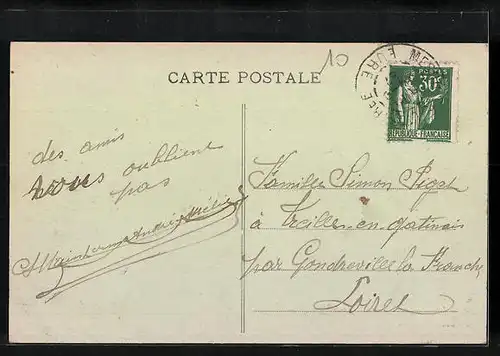 10
CARTE POSTALE
EURE
POSTES
30c
RÉPUBLIQUE FRANÇAISE
des amis
vous oublient
pas
Famille Simon Piget
à Treilles-en-gatinais
par Gondreville la Franche
Loiret